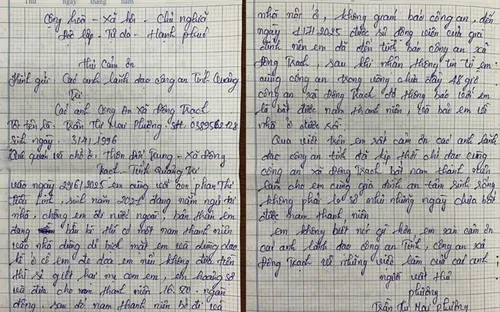 Cộng hòa - Xã hội - Chủ nghĩa
Độc lập - Tự do - Hạnh phúc
Thư Cảm ơn
Kính gửi: Các anh lãnh đạo công an Tỉnh Quảng
Trị
Các anh Công An Xã Đông Trạch
Tên: Trần Thị Mai Phương
Sinh ngày: 3/2/1996
Quê quán và chỗ ở: Thôn - Xã Đông
Trạch - Tỉnh Quảng Trị
vào ngày 29/6/2025 em cùng với con phan Thị
sinh năm 2021 đang nằm ngủ tại
nhà, chồng em đi nước ngoài, bản thân em
đang bầu bí thì có một nam thanh niên
vào nhà dùng bịt mặt em và dùng dao
kề ở cổ em đe dọa em nếu không đưa tiền
thì sẽ giết hai mẹ con em, em hoảng sợ
và đưa cho nam thanh niên 16.520. ngàn
đồng. sau đó nam thanh niên bỏ đi và
nhà nói ở, không giám báo công an, đến
ngày 1/7/2025 được sự động viên của gia
đình nên em đã đến trình báo công an xã
Đông Trạch, sau khi nhận thông tin từ em
cùng công an trong vòng chưa đầy 48 giờ
công an xã Đông Trạch đã thông báo với em
là bắt được nam thanh niên,
Qua việc trên em rất cảm ơn các anh lãnh
đạo công an tỉnh đã kịp thời chỉ đạo cùng
công an xã Đông Trạch bắt nam thanh niên
làm cho em cùng gia đình an tâm sinh sống
không phải lo sợ như những ngày chưa bắt
được nam thanh niên
em không biết nói gì hơn em xin cảm ơn
các anh lãnh đạo công an Tỉnh, công an xã
Đông Trạch về những việc làm của các anh
người viết thư
Phương
Trần Thị Mai Phương